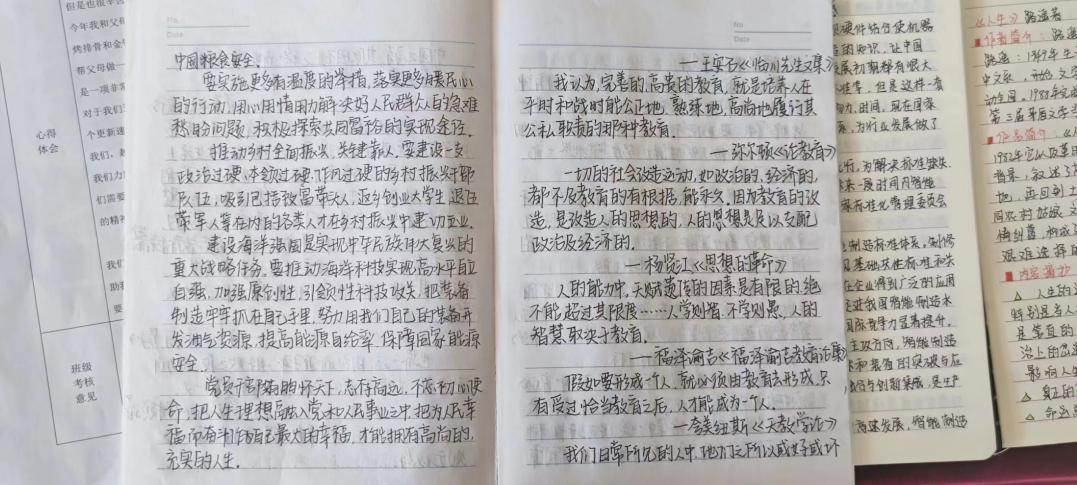 但是也很辛苦
今年我和父母
烤排骨和金
帮父母做一
是一项非常
对于我们
个更新速
我们，
我们力
们需要
的精神
我们
助我
要
心得
体会
班级
考核
意见
No.
Date
中国粮食安全。
要实施更多有温度的举措，落实更多暖民心
的行动，用心用情用力解决好人民群众的急难
愁盼问题，积极探索共同富裕的实现途径。
推动乡村全面振兴，关键靠人。要建设一支
政治过硬、本领过硬、作风过硬的乡村振兴干部
队伍，吸引包括致富带头人、返乡创业大学生、退役
军人等在内的各类人才在乡村振兴中建功立业。
建设海洋强国是实现中华民族伟大复兴的
重大战略任务。要推动海洋科技实现高水平自立
自强，加强原创性、引领性科技攻关，把装备
制造牢牢抓在自己手里，努力用我们自己的装备开
发油气资源，提高能源自给率，保障国家能源
安全。
党员干部要胸怀天下，志存高远，不忘初心使
命，把人生理想融入党和人民事业之中，把为人民幸
福而奋斗作为自己最大的幸福，才能拥有高尚的，
充实的人生。
No
Date
—王安石《临川先生文集》
我认为，完善的，高贵的教育，就是培养人在
平时和战时能公正地，熟练地，高尚地履行其
公私职责的那种教育。
—弥尔顿《论教育》
一切的社会改造运动，如政治的，经济的，
都不及教育的有根据，能永久，因为教育的改
造，是改造人的思想的，人的思想是足以支配
政治及经济的。
—杨贤江《思想的革命》
人的能力中，天赋遗传的因素是有限的，绝
不能超过其限度……人学则智，不学则愚，人的
智慧取决于教育。
—福泽谕吉《福泽谕吉教育论集》
假如要形成一个人，就必须由教育去形成，只
有受过恰当教育之后，人才能成为一个人。
—夸美纽斯《大教学论》
我们日常所见的人中，他们之所以或好或坏
硬件结合使机器
的知识，让中国
展初期都有很大
但是这样一套
力，时间，现在国家
为行业发展做了
为解决标准缺失
来一段时间内智能
标准化管理委员会
制造标准体系，制修
基础共性标准和关
在企业得到广泛的应用
进我国智能制造水
国际竞争力显著提升。
主攻方向，智能制造
和装备的突破与应
与创新集成，是生产
高速发展，智能制造
《人生》路遥著
作者简介：路遥
路遥：1949年生
中文系，开始文学
第三届茅盾文学
作品简介：
背景，叙述了
地，再回到土
艰难选择的
内容摘抄
△人生的道
影响人生
△真正的